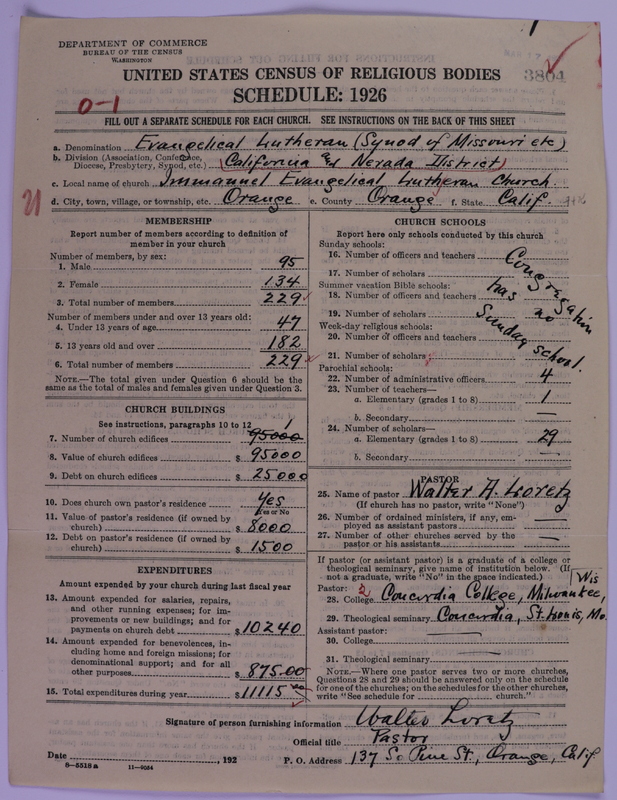 DEPARTMENT OF COMMERCE
BUREAU OF THE CENSUS
WASHINGTON
UNITED STATES CENSUS OF RELIGIOUS BODIES
3804
SCHEDULE: 1926
0-1
FILL OUT A SEPARATE SCHEDULE FOR EACH CHURCH. SEE INSTRUCTIONS ON THE BACK OF THIS SHEET
a. Denomination Evangelical Lutheran (Synod of Missouri etc)
b. Division (Association, Conference, Diocese, Presbytery, Synod, etc.) (California & Nevada District)
c. Local name of church Immanuel Evangelical Lutheran Church
d. City, town, village, or township, etc. Orange e. County Orange f. State Calif.
MEMBERSHIP
Report number of members according to definition of
member in your church
Number of members, by sex:
1. Male 95
2. Female 134
3. Total number of members 229
Number of members under and over 13 years old:
4. Under 13 years of age 47
5. 13 years old and over 182
6. Total number of members 229
NOTE.—The total given under Question 6 should be the
same as the total of males and females given under Question 3.
CHURCH BUILDINGS
See instructions, paragraphs 10 to 12
7. Number of church edifices 95000 1
8. Value of church edifices $ 95000
9. Debt on church edifices $ 25000
10. Does church own pastor's residence Yes
Yes or No
11. Value of pastor's residence (if owned by
church) $ 8000
12. Debt on pastor's residence (if owned by
church) $ 1500
EXPENDITURES
Amount expended by church during last fiscal year
13. Amount expended for salaries, repairs,
and other running expenses; for im-
provements or new buildings; and for
payments on church debt $ 10240
14. Amount expended for benevolences, in-
cluding home and foreign missions; for
denominational support; and for all
other purposes $ 875.00
15. Total expenditures during year $ 11115
CHURCH SCHOOLS
Report here only schools conducted by this church
Sunday schools:
16. Number of officers and teachers
17. Number of scholars
Summer vacation Bible schools:
18. Number of officers and teachers
19. Number of scholars
Week-day religious schools:
20. Number of officers and teachers
21. Number of scholars
Congregation
has no
Sunday school.
Parochial schools:
22. Number of administrative officers 4
23. Number of teachers—
a. Elementary (grades 1 to 8) 1
b. Secondary —
24. Number of scholars—
a. Elementary (grades 1 to 8) 29
b. Secondary —
PASTOR
25. Name of pastor Walter A. Loretz
(If church has no pastor, write "None")
26. Number of ordained ministers, if any, em-
ployed as assistant pastors —
27. Number of other churches served by the
pastor or his assistants —
If pastor (or assistant pastor) is a graduate of a college or
theological seminary, give name of institution below. (If
not a graduate, write "No" in the space indicated.)
Pastor: 2 Wis
28. College Concordia College, Milwaukee,
29. Theological seminary Concordia, St. Louis, Mo.
Assistant pastor:
30. College —
31. Theological seminary —
NOTE.—Where one pastor serves two or more churches,
Questions 28 and 29 should be answered only on the schedule
for one of the churches; on the schedules for the other churches,
write "See schedule for church."
Signature of person furnishing information Walter Loretz
Official title Pastor
Date , 192 P. O. Address 137 So Pine St., Orange, Calif
8-5518a 11-9054